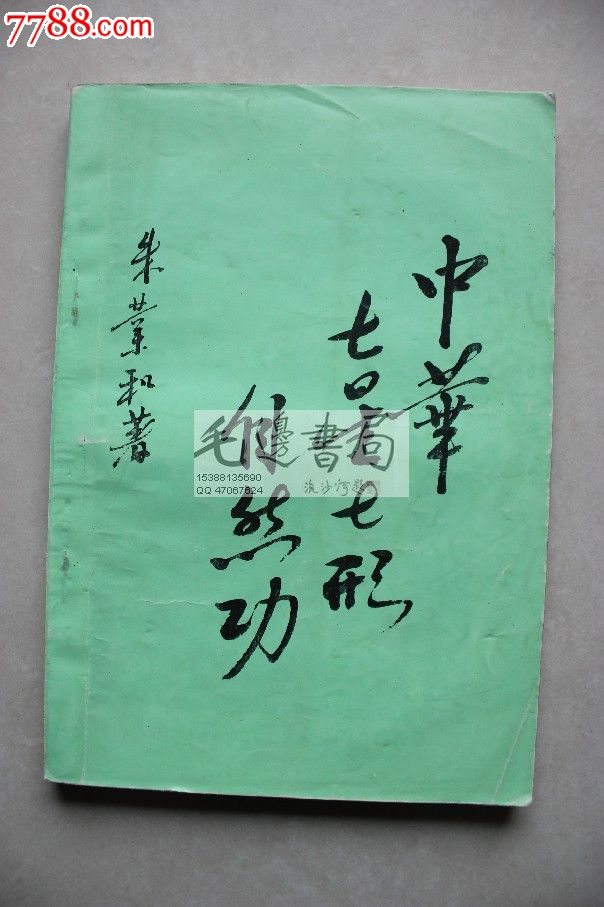 7788.com
中華
七 七形
然功
朱業和著
毛邊書局
15388135690
QQ 47067624
流沙河题